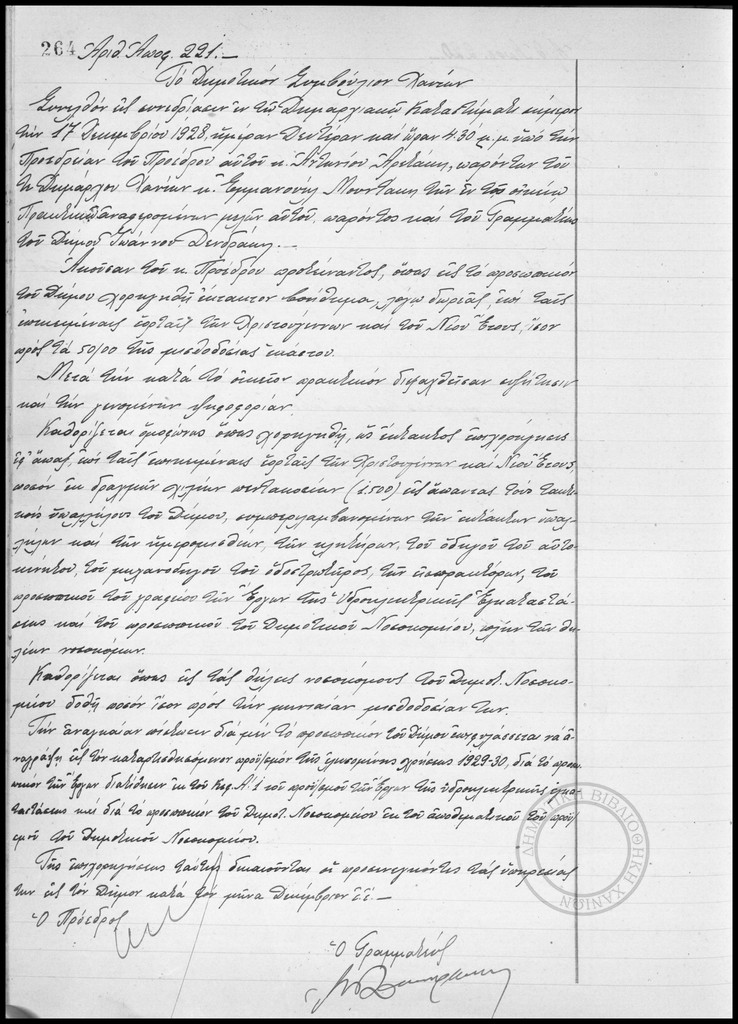 264 Ἀριθ. Ἀποφ. 221.—
Τὸ Δημοτικὸν Συμβούλιον Χανίων
Συνελθὸν εἰς συνεδρίασιν ἐν τῷ Δημαρχιακῷ Καταστήματι σήμερον
τὴν 17 Δεκεμβρίου 1928, ἡμέραν Δευτέραν καὶ ὥραν 4.30 μ.μ. ὑπὸ τὴν
Προεδρείαν τοῦ Προέδρου αὐτοῦ κ. Ἀντωνίου, παρόντων τοῦ
κ. Δημάρχου Χανίων κ. Ἐμμανουὴλ Μουντάκη τῶν ἐν τῷ οἰκείῳ
Πρακτικῷ ἀναφερομένων μελῶν αὐτοῦ, παρόντος καὶ τοῦ Γραμματέως
τοῦ Δήμου Ἰωάννου Δενδράκη.—
Ἀκοῦσαν τοῦ κ. Προέδρου προτείναντος, ὅπως εἰς τὸ προσωπικὸν
τοῦ Δήμου χορηγηθῇ ἔκτακτον βοήθημα, λόγῳ δωρεᾶς, ἐπὶ ταῖς
ἐπικειμέναις ἑορταῖς τῶν Χριστουγέννων καὶ τοῦ Νέου Ἔτους, ἴσον
πρὸς τὰ 50/00 τῆς μισθοδοσίας ἑκάστου.
Μετὰ τὴν κατὰ τὸ οἰκεῖον πρακτικὸν διεξαχθεῖσαν συζήτησιν
καὶ τὴν γενομένην ψηφοφορίαν.
Καθορίζεται ὁμοφώνως ὅπως χορηγηθῇ, ὡς ἔκτακτος ἐπιχορήγησις
ἐφ' ἅπαξ, ἐπὶ ταῖς ἐπικειμέναις ἑορταῖς τῶν Χριστουγέννων καὶ Νέου Ἔτους,
ποσὸν ἐκ δραχμῶν χιλίων πεντακοσίων (1.500) εἰς ἅπαντας τοὺς τακτι-
κοὺς ὑπαλλήλους τοῦ Δήμου, συμπεριλαμβανομένων τῶν ἐκτάκτων ὑπαλ-
λήλων καὶ τῶν ἡμερομισθίων, τῶν κλητήρων, τοῦ ὁδηγοῦ τοῦ αὐτο-
κινήτου, τοῦ μηχανοδηγοῦ τοῦ ὁδοστρωτῆρος, τῶν εἰσπρακτόρων, τοῦ
προσωπικοῦ τοῦ γραφείου τῶν Ἔργων τῆς Ὑδροηλεκτρικῆς Ἐγκαταστά-
σεως καὶ τοῦ προσωπικοῦ τοῦ Δημοτικοῦ Νοσοκομείου, πλὴν τῶν θη-
λέων νοσοκόμων.
Καθορίζεται ὅπως εἰς τὰς θήλεις νοσοκόμους τοῦ Δημοτ. Νοσοκο-
μείου δοθῇ ποσὸν ἴσον πρὸς τὴν μηνιαίαν μισθοδοσίαν των.
Τὴν ἀναγκαίαν πίστωσιν διὰ μὲν τὸ προσωπικὸν τοῦ Δήμου ἐπιφυλάσσεται νὰ ἀ-
ναγράψῃ εἰς τὸν καταρτισθησόμενον προϋ/σμὸν τῆς ἑπομένης χρήσεως 1929-30, διὰ τὸ προσω-
πικὸν τῶν Ἔργων διατίθησιν ἐκ τοῦ Κεφ. Α. 1 τοῦ προϋ/σμοῦ τῶν Ἔργων τῆς ὑδροηλεκτρικῆς ἐγκα-
ταστάσεως καὶ διὰ τὸ προσωπικὸν τοῦ Δημοτ. Νοσοκομείου ἐκ τοῦ ἀποθεματικοῦ τοῦ προϋ/-
σμοῦ τοῦ Δημοτικοῦ Νοσοκομείου.
Τῆς ἐπιχορηγήσεως ταύτης δικαιοῦνται οἱ προσενεγκόντες τὰς ὑπηρεσίας
των εἰς τὸν Δῆμον κατὰ τὸν μῆνα Δεκέμβριον ἐ.ἔ.—
Ὁ Πρόεδρος
Ὁ Γραμματεὺς
ΔΗΜΟΤΙΚΗ ΒΙΒΛΙΟΘΗΚΗ ΧΑΝΙΩΝ